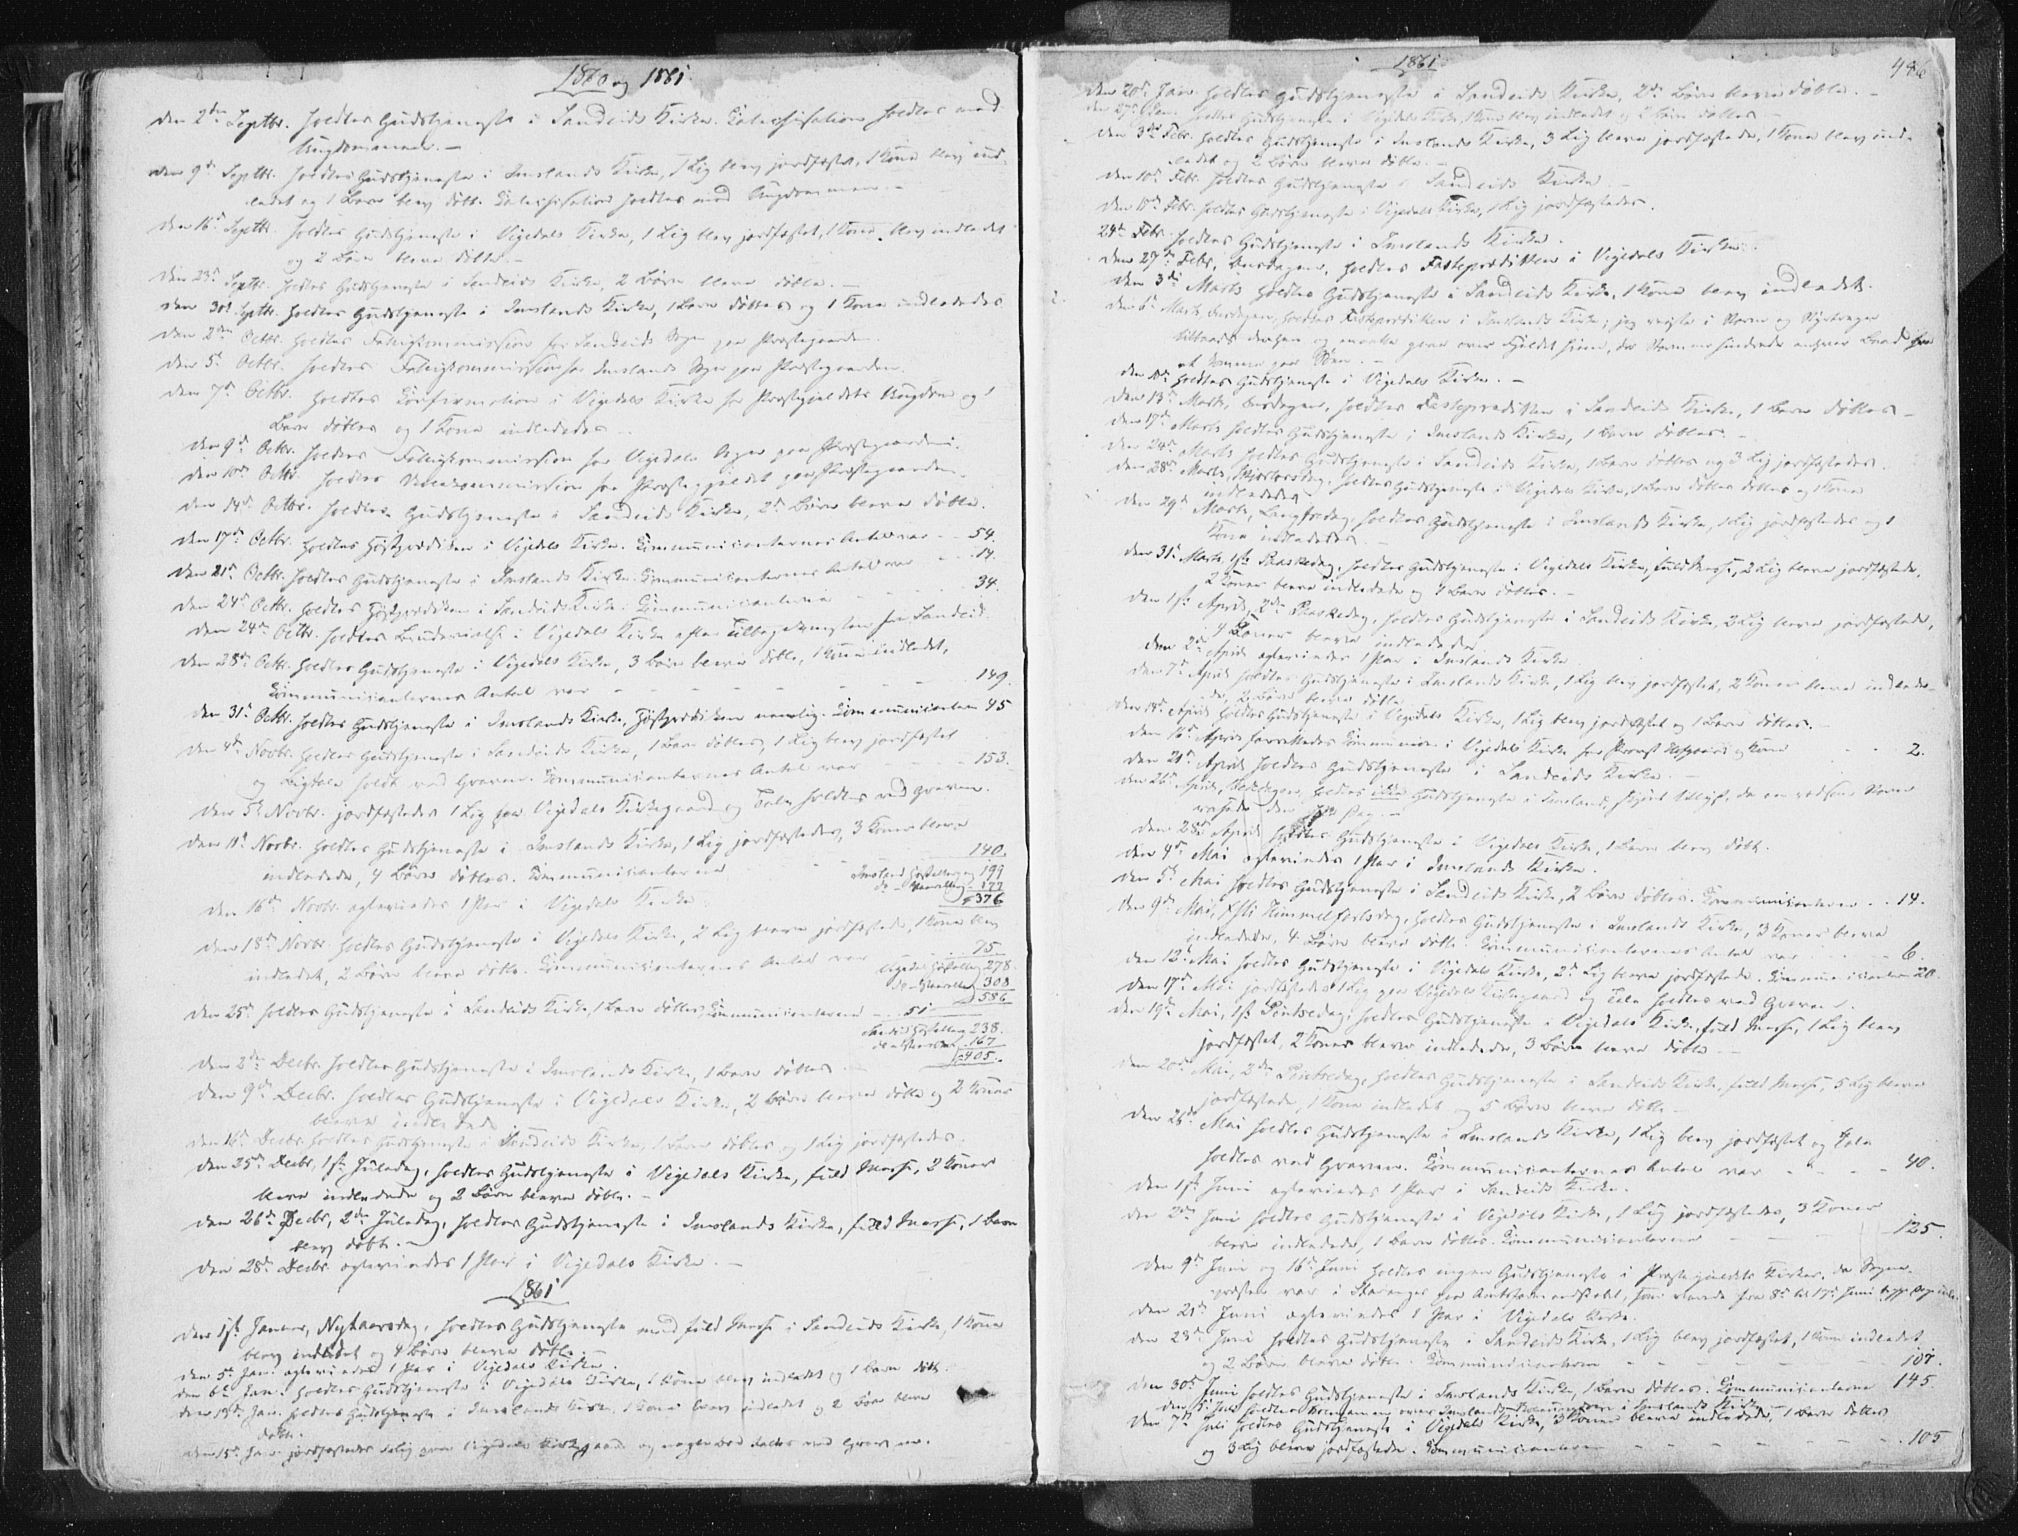 1860 og 1861
den 2den Septbr. holdtes Gudstjeneste i Sandeids Kirke. Catechisation holdtes med
Ungdommen. —
den 9de Septbr. holdtes Gudstjeneste i Imslands Kirke, 1 Lig blev jordfæstet, 1 Kone blev ind-
ledet og 1 Barn blev døbt. Catechisation holdtes med Ungdommen. —
den 16de Septbr. holdtes Gudstjeneste i Vigedals Kirke, 1 Lig blev jordfæstet, 1 Kone blev indledet
og 2 Børn bleve døbte. —
den 23de Septbr. holdtes Gudstjeneste i Sandeids Kirke, 2 Børn bleve døbte. —
den 30te Septbr. holdtes Gudstjeneste i Imslands Kirke, 1 Barn døbtes og 1 Kone indlededes
den 2den Octbr. holdtes Falsigkommission for Sandeids Sogn paa Præstegaarden.
den 5te Octbr. holdtes Falsigkommission for Imslands Sogn paa Præstegaarden.
den 7de Octbr. holdtes Confirmation i Vigedals Kirke for Præstegjeldets Ungdom og 1
Barn døbtes og 1 Kone indlededes —
den 9de Octbr. holdtes Falsigkommission for Vigedals Sogn paa Præstegaarden.
den 10de Octbr. holdtes Skolekommission for Præstegjeldet paa Præstegaarden.
den 14de Octbr. holdtes Gudstjeneste i Sandeids Kirke, 2de Børn bleve døbte.
den 17de Octbr. holdtes Høstprædiken i Vigedals Kirke. Communicanternes Antal var — 54.
den 21de Octbr. holdtes Gudstjeneste i Imslands Kirke. Communicanternes Antal var — 14.
den 24de Octbr. holdtes Høstprædiken i Sandeids Kirke. Communicanterne — 34.
den 24de Octbr. holdtes i Vigedals Kirke efter Tilbagekomsten fra Sandeid.
den 28de Octbr. holdtes Gudstjeneste i Vigedals Kirke, 3 Børn bleve døbte, 1 Kone indledet,
Communicanternes Antal var — 149.
den 31te Octbr. holdtes Gudstjeneste i Imslands Kirke, Høstprædiken nemlig. Communicanterne 45
den 4de Novbr. holdtes Gudstjeneste i Sandeids Kirke, 1 Barn døbtes, 1 Lig blev jordfæstet
og Ligtale holdt ved Graven. Communicanternes Antal var — 153.
den 5te Novbr. jordfæstedes 1 Lig paa Vigedals Kirkegaard og Tale holdtes ved Graven.
den 11te Novbr. holdtes Gudstjeneste i Imslands Kirke, 1 Lig jordfæstedes, 3 Koner bleve
indledede, 4 Børn døbtes. Communicanterne — 140.
Imsland Høsttillæg 199
do — 177
376
den 16de Novbr. egteviedes 1 Par i Vigedals Kirke
den 18de Novbr. holdtes Gudstjeneste i Vigedals Kirke, 2 Lig bleve jordfæstede, 1 Kone blev
indledet, 2 Børn bleve døbte. Communicanternes Antal var — 75
Vigedal 278.
do 308
586
den 25de holdtes Gudstjeneste i Sandeids Kirke, 1 Barn døbtes, Communicanterne — 51
Sandeid 238.
167
405.
den 2den Decbr. holdtes Gudstjeneste i Imslands Kirke, 1 Barn døbtes. —
den 9de Decbr. holdtes Gudstjeneste i Vigedals Kirke, 2 Børn bleve døbte og 2 Koner
bleve indledede
den 16de Decbr. holdtes Gudstjeneste i Sandeids Kirke, 1 Barn døbtes og 1 Lig jordfæstedes.
den 25de Decbr, 1ste Juledag, holdtes Gudstjeneste i Vigedals Kirke, fuld Messe, 2 Koner
bleve indledede og 2 Børn bleve døbte. —
den 26de Decbr, 2den Juledag, holdtes Gudstjeneste i Imslands Kirke, fuld Messe, 1 Barn
blev døbt. —
den 28de Decbr. egteviedes 1 Par i Vigedals Kirke. —
1861
den 1ste Januar, Nytaarsdag, holdtes Gudstjeneste med fuld Messe i Sandeids Kirke, 1 Kone
blev indledet og 4 Børn bleve døbte. —
den 5te Jan. egteviedes 1 Par i Vigedals Kirke.
den 6te Jan. holdtes Gudstjeneste i Vigedals Kirke, 1 Kone blev indledet og 1 Barn døbt.
den 13de Jan. holdtes Gudstjeneste i Imslands Kirke, 1 Kone blev indledet og 2 Børn bleve
døbte.
den 15de Jan. jordfæstedes 1 Lig paa Vigedals Kirkegaard og nogle Ord taltes ved Graven.
1861
486
den 20de Jan. holdtes Gudstjeneste i Sandeids Kirke, 2de Børn bleve døbte. —
den 27de Jan. holdtes Gudstjeneste i Vigedals Kirke, 1 Kone blev indledet og 2 Børn døbtes —
den 3die Febr. holdtes Gudstjeneste i Imslands Kirke, 3 Lig bleve jordfæstede, 1 Kone blev ind-
ledet og 2 Børn bleve døbte. —
den 10de Febr. holdtes Gudstjeneste i Sandeids Kirke —
den 17de Febr. holdtes Gudstjeneste i Vigedals Kirke, 1 Lig jordfæstedes.
24de Febr. holdtes Gudstjeneste i Imslands Kirke.
den 27de Febr, Onsdagen, holdtes Fasteprædiken i Vigedals Kirke.
den 3die Marts holdtes Gudstjeneste i Sandeids Kirke, 1 Kone blev indledet.
den 6te Marts, Onsdagen, holdtes Fasteprædiken i Imslands Kirke; jeg reiste i Storm og
tilbaads derhen og maatte gaae over Fjeldet hjem, da Stormen hindrede enhver Baad fra
at komme paa Søen. —
den 10de holdtes Gudstjeneste i Vigedals Kirke. —
den 13de Marts, Onsdagen, holdtes Fasteprædiken i Sandeids Kirke, 1 Barn døbtes —
den 17de Marts holdtes Gudstjeneste i Imslands Kirke, 1 Barn døbtes. —
den 24de Marts holdtes Gudstjeneste i Sandeids Kirke, 1 Barn døbtes og 3 Lig jordfæstedes.
den 28de Marts, Skjertorsdag, holdtes Gudstjeneste i Vigedals Kirke, 1 Barn døbtes og 1 Kone
indlededes
den 29de Marts, Langfredag, holdtes Gudstjeneste i Imslands Kirke, 1 Lig jordfæstedes og 1
Kone indlededes. —
den 31te Marts, 1ste Paaskedag, holdtes Gudstjeneste i Vigedals Kirke, fuld Messe, 2 Lig bleve jordfæstede,
2 Koner bleve indledede og 4 Børn døbtes. —
den 1ste April, 2den Paaskedag, holdtes Gudstjeneste i Sandeids Kirke, 2 Lig bleve jordfæstede,
4 Koner bleve indledede
den 2den April egteviedes 1 Par i Imslands Kirke.
den 7de April holdtes Gudstjeneste i Imslands Kirke, 1 Lig blev jordfæstet, 2 Koner bleve indlede-
de, 2 Børn bleve døbte.
den 14de April holdtes Gudstjeneste i Vigedals Kirke, 1 Lig blev jordfæstet og 1 Barn døbtes. —
den 16de April forrettedes Communion i Vigedals Kirke for Provst og Kone — 2.
den 21de April holdtes Gudstjeneste i Sandeids Kirke. —
den 26de April, Bededagen, holdtes ikke Gudstjeneste i Imsland, da en rædsom Storm
rasede den Dag. —
den 28de April holdtes Gudstjeneste i Vigedals Kirke, 1 Barn blev døbt.
den 4de Mai egteviedes 1 Par i Imslands Kirke.
den 5te Mai holdtes Gudstjeneste i Sandeids Kirke, 2 Børn døbtes. Communicanterne — 14.
den 9de Mai, Christi Himmelfartsdag, holdtes Gudstjeneste i Imslands Kirke, 3 Koner bleve
indledede, 4 Børn bleve døbte. Communicanternes Antal var — 6.
den 12te Mai holdtes Gudstjeneste i Vigedals Kirke, 2de Lig bleve jordfæstede. Communicanterne 20.
den 17de Mai jordfæstedes 1 Lig paa Vigedals Kirkegaard og Tale holdtes ved Graven. —
den 19de Mai, 1ste Pintsedag, holdtes Gudstjeneste i Vigedals Kirke, fuld Messe, 1 Lig blev
jordfæstet, 2 Koner bleve indledede, 3 Børn bleve døbte —
den 20de Mai, 2den Pintsedag, holdtes Gudstjeneste i Sandeids Kirke, fuld Messe, 5 Lig bleve
jordfæstede, 1 Kone indledet og 5 Børn bleve døbte —
den 26de Mai holdtes Gudstjeneste i Imslands Kirke, 1 Lig blev jordfæstet og Tale
holdtes ved Graven. Communicanternes Antal var — 40.
den 1ste Juni egteviedes 1 Par i Sandeids Kirke.
den 2den Juni holdtes Gudstjeneste i Vigedals Kirke, 1 Lig jordfæstedes, 3 Koner
bleve indledede, 1 Barn døbtes. Communicanterne — 125.
den 9de Juni og 16de Juni holdtes ingen Gudstjeneste i Præstegjeldets Kirker, da Sogne-
præsten var i Stavanger paa Amtsformandskabet, som varede fra 8de til 17de Juni
den 21de Juni egteviedes 1 Par i Vigedals Kirke.
den 23de Juni holdtes Gudstjeneste i Sandeids Kirke, 1 Lig blev jordfæstet, 1 Kone indledet
og 2 Børn bleve døbte. Communicanterne — 107.
den 30te Juni holdtes Gudstjeneste i Imslands Kirke, 1 Barn døbtes. Communicanterne 145
den 5te Juli holdtes Examen over Imslands i Imslands Kirke —
den 7de Juli holdtes Gudstjeneste i Vigedals Kirke, 3 Koner bleve indledede, 1 Barn døbtes
og 3 Lig bleve jordfæstede. Communicanterne — 105